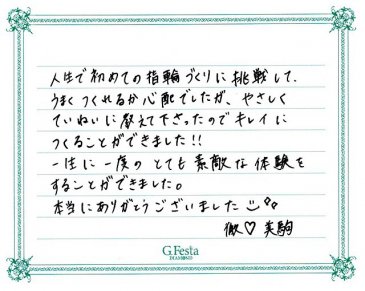 人生で初めての指輪づくりに挑戦して、
うまくつくれるか心配でしたが、やさしく
ていねいに教えて下さったのでキレイに
つくることができました!!
一生に一度のとても素敵な体験を
することができました。
本当にありがとうございました
徹♡美駒
G.Festa
DIAMOND